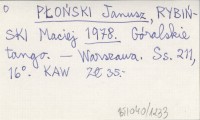 0 PŁOŃSKI Janusz, RYBIŃ-
SKI Maciej 1978. Góralskie
tango. — Warszawa. Ss. 211,
16°. KAW zł 35.-
81040/1233